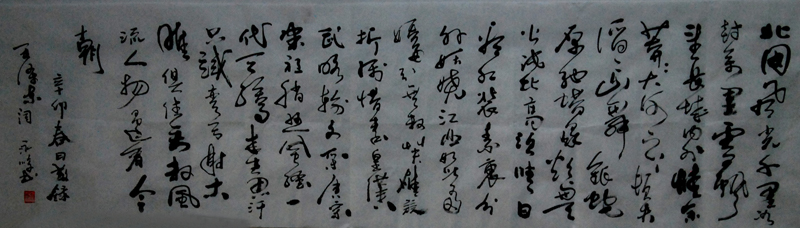 北国风光千里冰
封万里雪飘
望长城内外惟余
莽莽大河上下顿失
滔滔山舞银蛇
原驰蜡象欲与天
公试比高须晴日
看红装素裹分
外妖娆江山如此多
娇引无数英雄竞
折腰惜秦皇汉
武略输文采唐宗
宋祖稍逊风骚一
代天骄成吉思汗
只识弯弓射大
雕俱往矣数风
流人物还看今
朝
辛卯春日敬录
毛泽东词